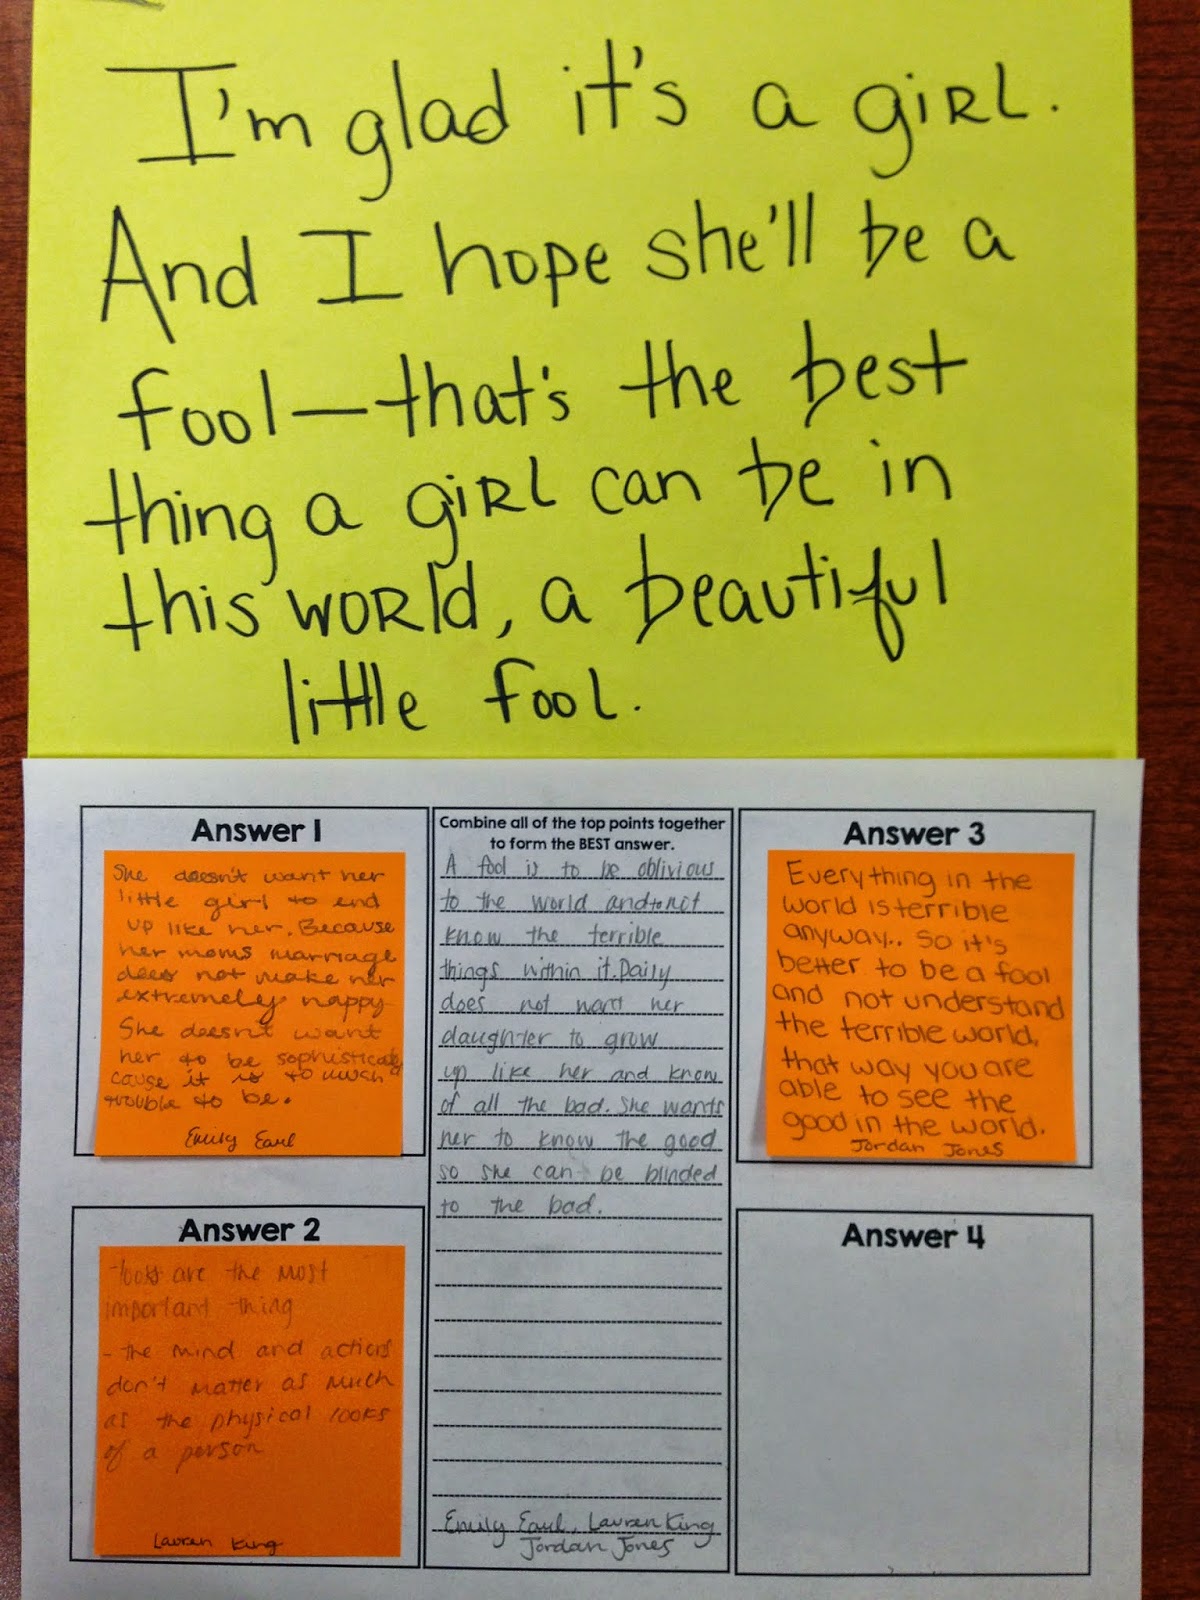 I'm glad it's a girl.
And I hope she'll be a
fool—that's the best
thing a girl can be in
this world, a beautiful
little fool.
Answer 1
She doesn't want her
little girl to end
up like her. Because
her moms marriage
does not make her
extremely happy
She doesn't want
her to be sophisticated
cause it is to much
trouble to be.
Emily Earl
Answer 2
-looks are the most
important thing
- the mind and actions
don't matter as much
as the physical looks
of a person
Lauren King
Combine all of the top points together
to form the BEST answer.
A fool is to be oblivious
to the world and to not
know the terrible
things within it. Daily
does not want her
daughter to grow
up like her and know
of all the bad. She wants
her to know the good
so she can be blinded
to the bad.
Emily Earl, Lauren King
Jordan Jones
Answer 3
Everything in the
world is terrible
anyway.. So it's
better to be a fool
and not understand
the terrible world,
that way you are
able to see the
good in the world.
Jordan Jones
Answer 4